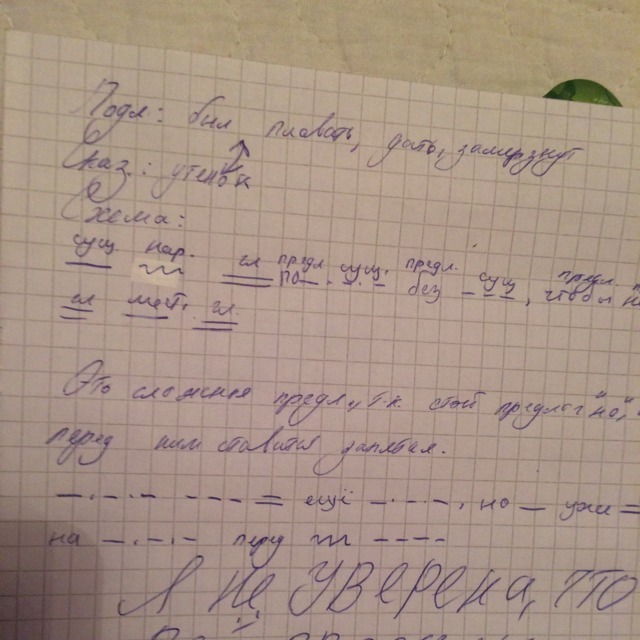 Подл: был плавать, дать, замерзнут
Сказ.: утенок
Схема:
сущ нар. гл предл. сущ. предл. сущ предл.
по без , чтобы
гл мест. гл.
Это сложная предл., т.к. стой предлог "но",
перед ним ставится запятая.
ещё , но уже
на перу
Я не уверена, что